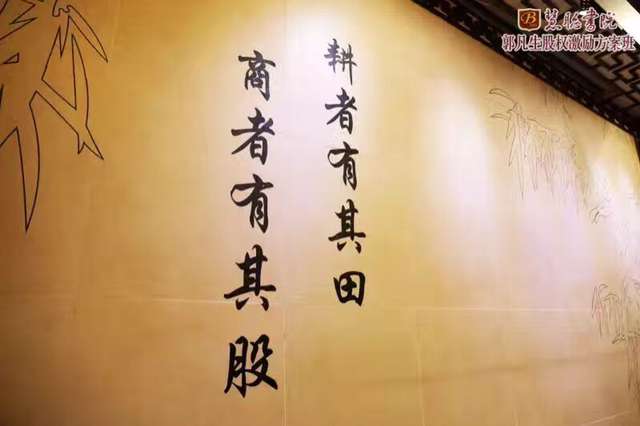 慧聪书院
郭凡生股权激励方案班
耕者有其田
商者有其股